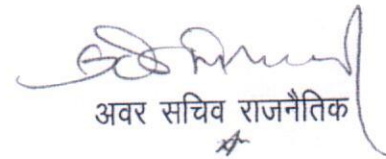 अवर सचिव राजनैतिक